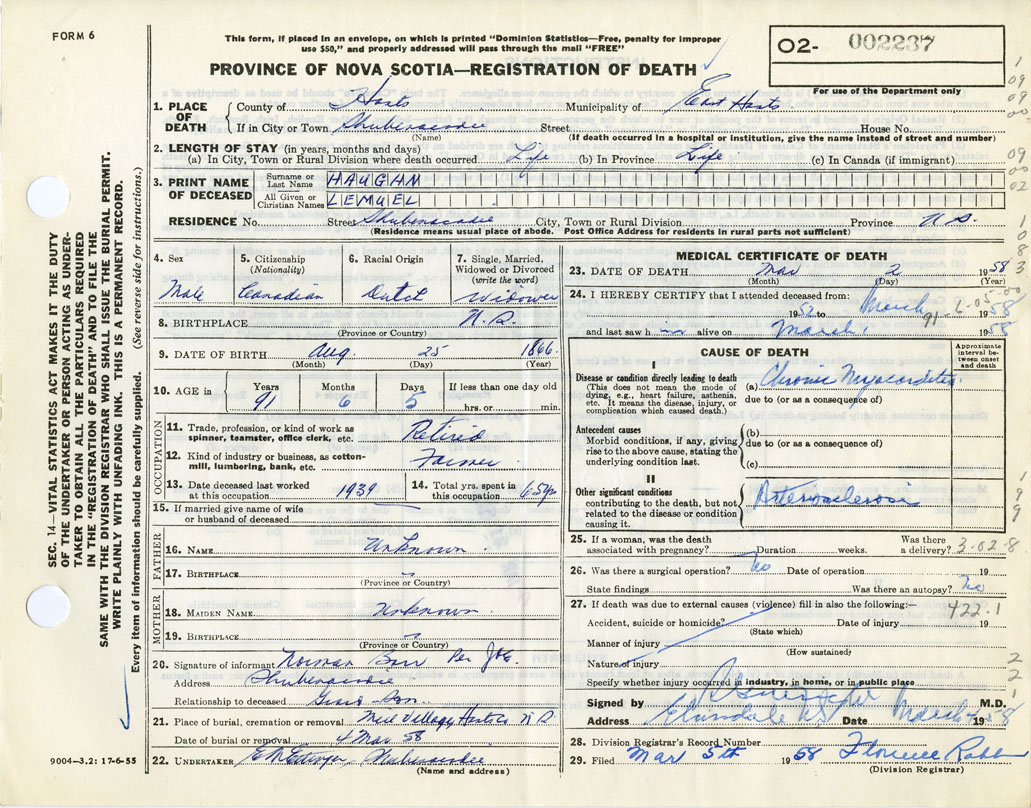 FORM 6
This form, if placed in an envelope, on which is printed "Dominion Statistics—Free, penalty for improper
use $50," and properly addressed will pass through the mail "FREE"
PROVINCE OF NOVA SCOTIA—REGISTRATION OF DEATH
O2- 002237
For use of the Department only
1. PLACE OF DEATH
County of Hants Municipality of East Hants
If in City or Town Shubenacadie Street House No.
(Name) (If death occurred in a hospital or institution, give the name instead of street and number)
2. LENGTH OF STAY (in years, months and days)
(a) In City, Town or Rural Division where death occurred Life (b) In Province Life (c) In Canada (if immigrant)
3. PRINT NAME OF DECEASED
Surname or Last Name HAUGHN
All Given or Christian Names LEMUEL
RESIDENCE No. Street Shubenacadie City, Town or Rural Division Province N.S.
(Residence means usual place of abode. Post Office Address for residents in rural parts not sufficient)
4. Sex
Male
5. Citizenship (Nationality)
Canadian
6. Racial Origin
Dutch
7. Single, Married, Widowed or Divorced (write the word)
Widower
8. BIRTHPLACE N.S.
(Province or Country)
9. DATE OF BIRTH Aug. 25 1866
(Month) (Day) (Year)
10. AGE in Years Months Days If less than one day old
91 6 5 hrs. or min.
OCCUPATION
11. Trade, profession, or kind of work as spinner, teamster, office clerk, etc. Retired
12. Kind of industry or business, as cotton-mill, lumbering, bank, etc. Farmer
13. Date deceased last worked at this occupation 1939
14. Total yrs. spent in this occupation 65 yrs
15. If married give name of wife or husband of deceased
FATHER
16. NAME Unknown
17. BIRTHPLACE
(Province or Country)
MOTHER
18. MAIDEN NAME Unknown
19. BIRTHPLACE
(Province or Country)
20. Signature of informant Norman Per
Address Shubenacadie
Relationship to deceased Grand Son
21. Place of burial, cremation or removal Mill Village Hants Co N.S.
Date of burial or removal 4 Mar 58
22. UNDERTAKER Shubenacadie
(Name and address)
9004—3.2: 17-6-55
MEDICAL CERTIFICATE OF DEATH
23. DATE OF DEATH Mar 2 1958
(Month) (Day) (Year)
24. I HEREBY CERTIFY that I attended deceased from:
1952 to March 1958
and last saw him alive on March 1 1958
CAUSE OF DEATH
Approximate interval between onset and death
I
Disease or condition directly leading to death
(This does not mean the mode of dying, e.g., heart failure, asthenia, etc. It means the disease, injury, or complication which caused death.)
(a) Chronic Myocarditis
due to (or as a consequence of)
Antecedent causes
Morbid conditions, if any, giving rise to the above cause, stating the underlying condition last.
(b)
due to (or as a consequence of)
(c)
II
Other significant conditions
contributing to the death, but not related to the disease or condition causing it.
Arteriosclerosis
25. If a woman, was the death associated with pregnancy? Duration weeks. Was there a delivery?
3-02-8
26. Was there a surgical operation? No Date of operation 19
State findings Was there an autopsy? No
27. If death was due to external causes (violence) fill in also the following:—
422.1
Accident, suicide or homicide? Date of injury 19
(State which)
Manner of injury
(How sustained)
Nature of injury
Specify whether injury occurred in industry, in home, or in public place
Signed by M.D.
Address N.S. Date March 1958
28. Division Registrar's Record Number
29. Filed Mar 5th 1958 Florence
(Division Registrar)
SEC. 14—VITAL STATISTICS ACT MAKES IT THE DUTY
OF THE UNDERTAKER OR PERSON ACTING AS UNDER-
TAKER TO OBTAIN ALL THE PARTICULARS REQUIRED
IN THE "REGISTRATION OF DEATH" AND TO FILE THE
SAME WITH THE DIVISION REGISTRAR WHO SHALL ISSUE THE BURIAL PERMIT.
WRITE PLAINLY WITH UNFADING INK. THIS IS A PERMANENT RECORD.
Every item of information should be carefully supplied. (See reverse side for instructions.)